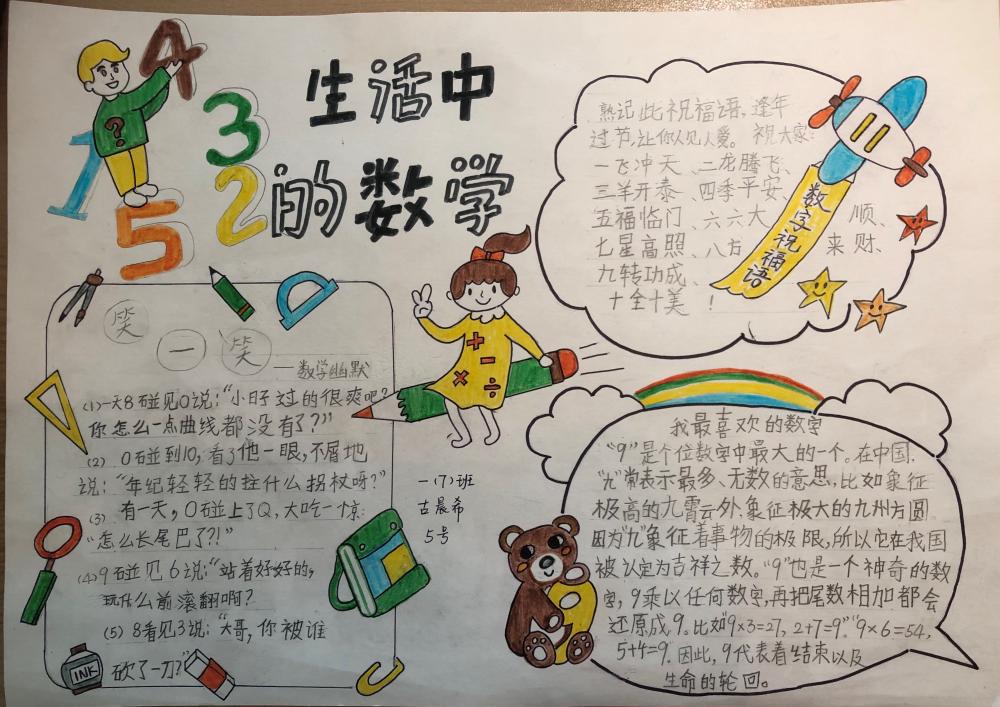 4
1
3
2
5
?
生活中
的数学
熟记此祝福语,逢年
过节,让你人见人爱。祝大家:
一飞冲天、二龙腾飞、
三羊开泰、四季平安、
五福临门、六六大顺、
七星高照、八方来财、
九转功成、
十全十美!
数字祝福语
笑一笑
—数学幽默
(1)一天8碰见0说:“小日子过的很爽吧?
你怎么一点曲线都没有了?”
(2) 0碰到10,看了他一眼,不屑地
说:“年纪轻轻的拄什么拐杖呀?”
(3) 有一天,0碰上了Q,大吃一惊:
“怎么长尾巴了?!”
(4)9碰见6说:“站着好好的,
玩什么前滚翻啊?
(5) 8看见3说:“大哥,你被谁
砍了一刀?”
INK
+ - × ÷
一(7)班
古晨希
5号
我最喜欢的数字
“9”是个位数字中最大的一个。在中国,
“九”常表示最多、无数的意思,比如象征
极高的九霄云外、象征极大的九州方圆
因为“九”象征着事物的极限,所以它在我国
被认定为吉祥之数。“9”也是一个神奇的数
字,9乘以任何数字,再把尾数相加都会
还原成9。比如“9×3=27,2+7=9”“9×6=54,
5+4=9。因此,9代表着结束以及
生命的轮回。